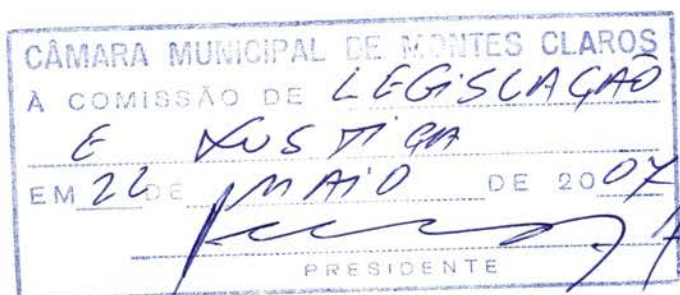 CÂMARA MUNICIPAL DE MONTES CLAROS
À COMISSÃO DE LEGISLAÇÃO
E JUSTIÇA
EM 22 DE MAIO DE 2007
PRESIDENTE